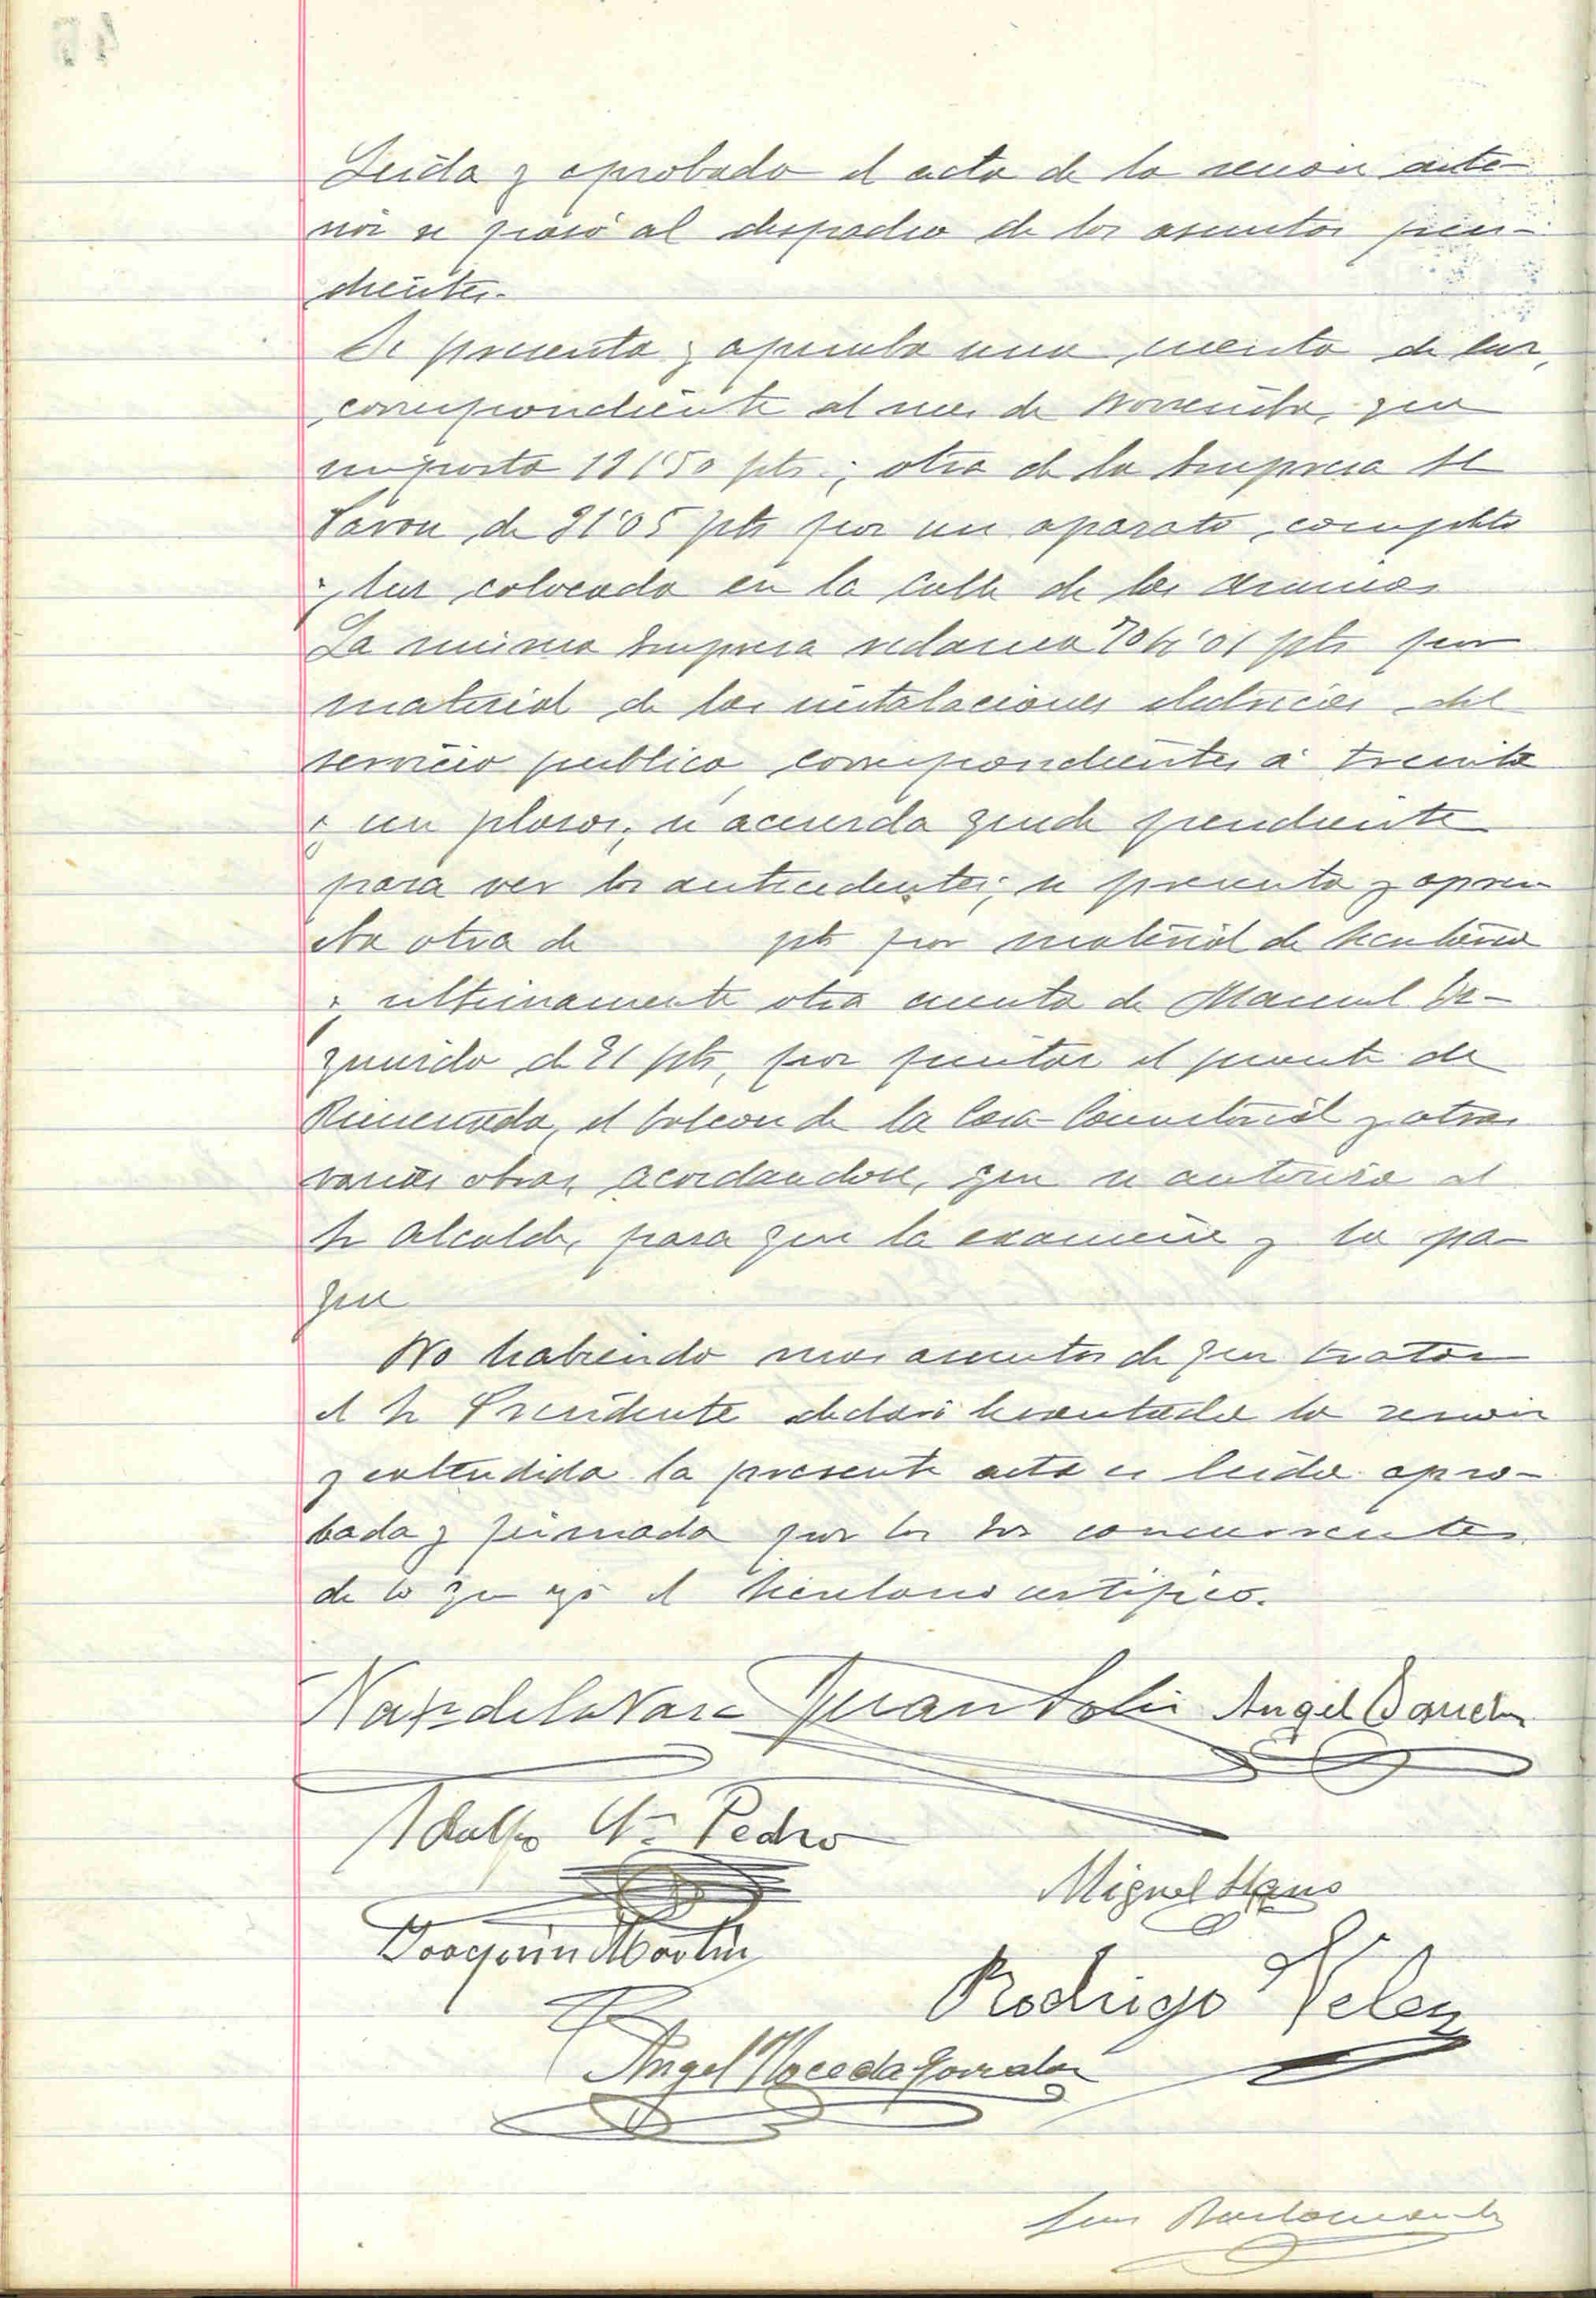 Leida y aprobada el acta de la sesion ante-
rior se pasó al despacho de los asuntos pen-
dientes.
Se presenta y aprueba una cuenta de luz,
correspondiente al mes de Noviembre, que
importa 111'50 pts.; otra de la Empresa El
de 31'05 pts por un aparato completo
y luz colocado en la Calle de las
La misma Empresa reclama pts por
material de las instalaciones electricas del
servicio publico correspondientes á treinta
y un plazos; se acuerda quede pendiente
para ver los antecedentes; se presenta y aprue-
ba otra de pts por material de Secretaria
y ultimamente otra cuenta de Manuel Iz-
quierdo de 21 pts, por pintar el puente de
el balcon de la Casa Consistorial y otras
varias obras, acordandose, que se autorise al
Sr Alcalde, para que la examine y la pa-
gue
No habiendo mas asuntos de que tratar
el Sr Presidente declaró levantada la sesion
y extendida la presente acta es leida apro-
bada y firmada por los Sres concurrentes
de lo que yo el Secretario certifico.
Juan Solis Angel
Adolfo Pedro
Miguel
Joaquin Martin
Rodrigo Velez
Angel Noceda Gonzalez
Luis